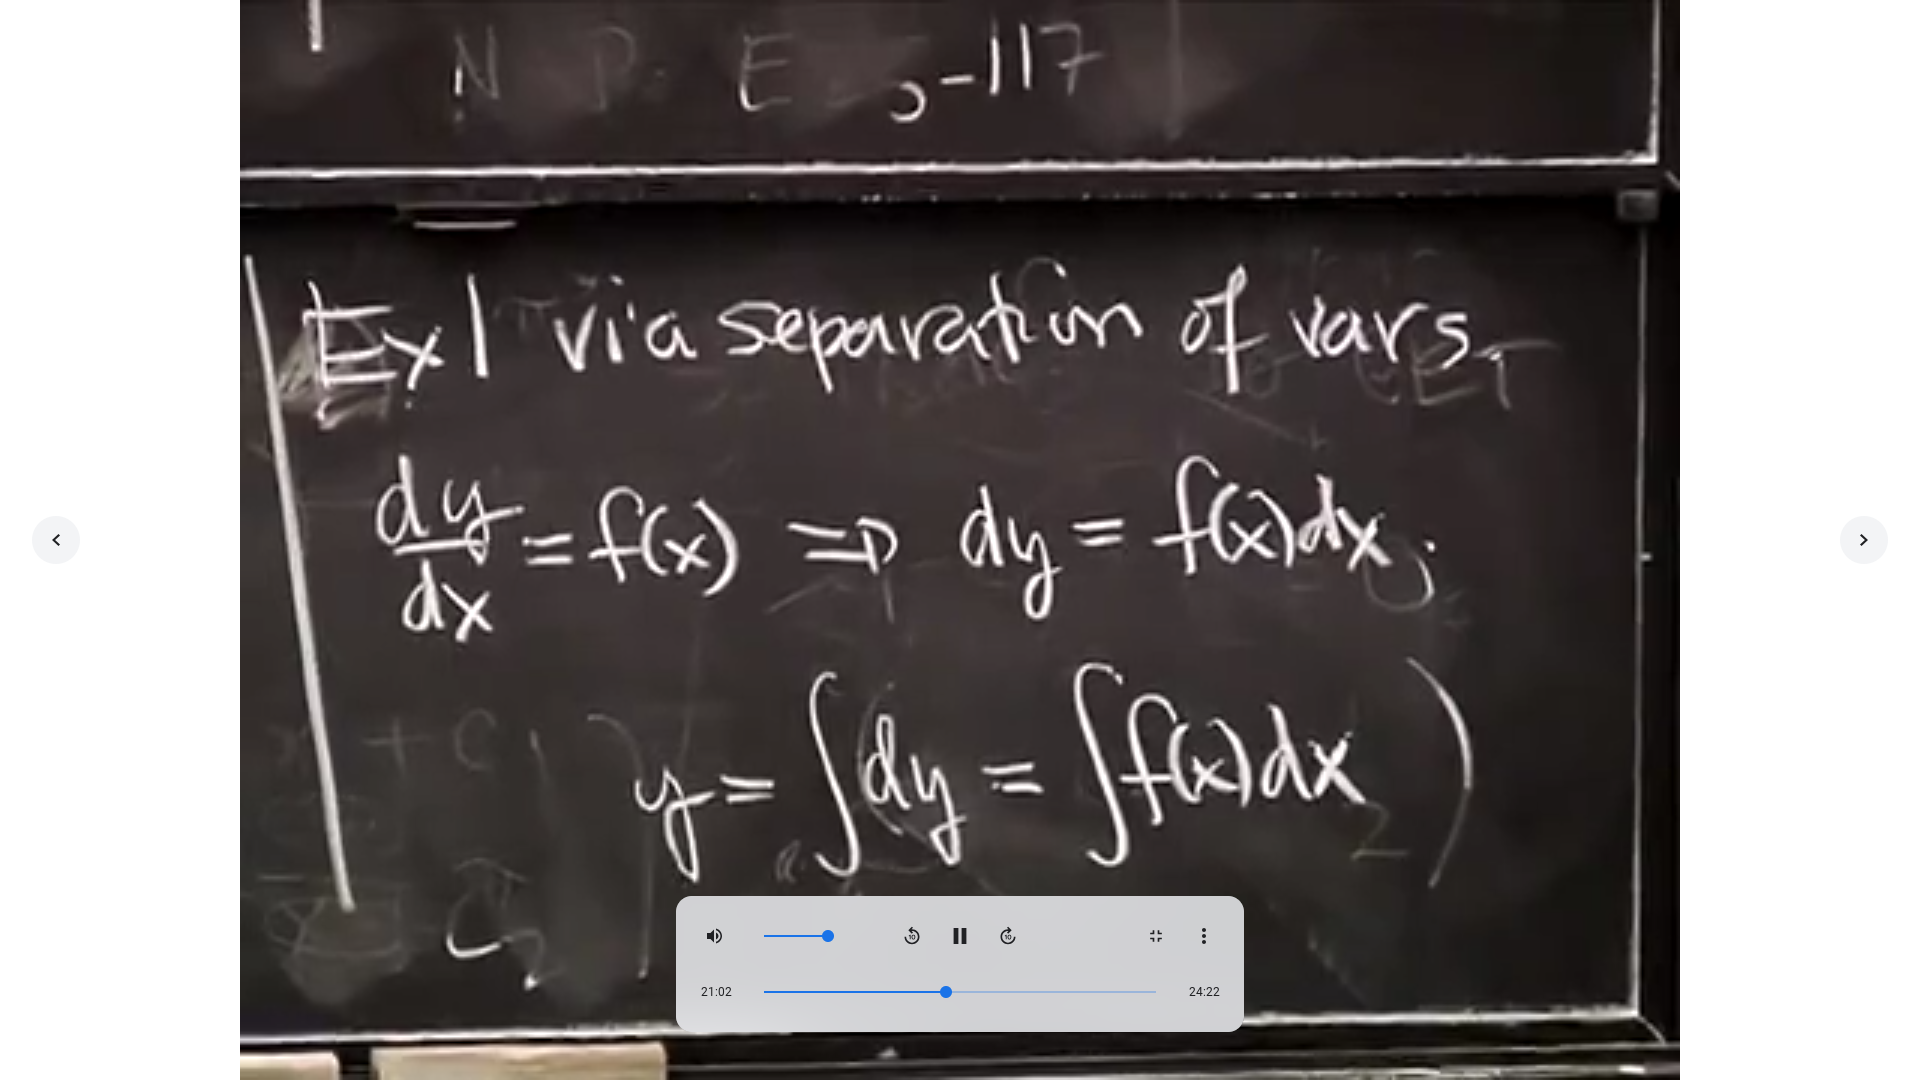 -117
Ex 1 via separation of vars.
dy/dx = f(x) ⇒ dy = f(x)dx;
y = ∫dy = ∫f(x)dx
21:02
24:22